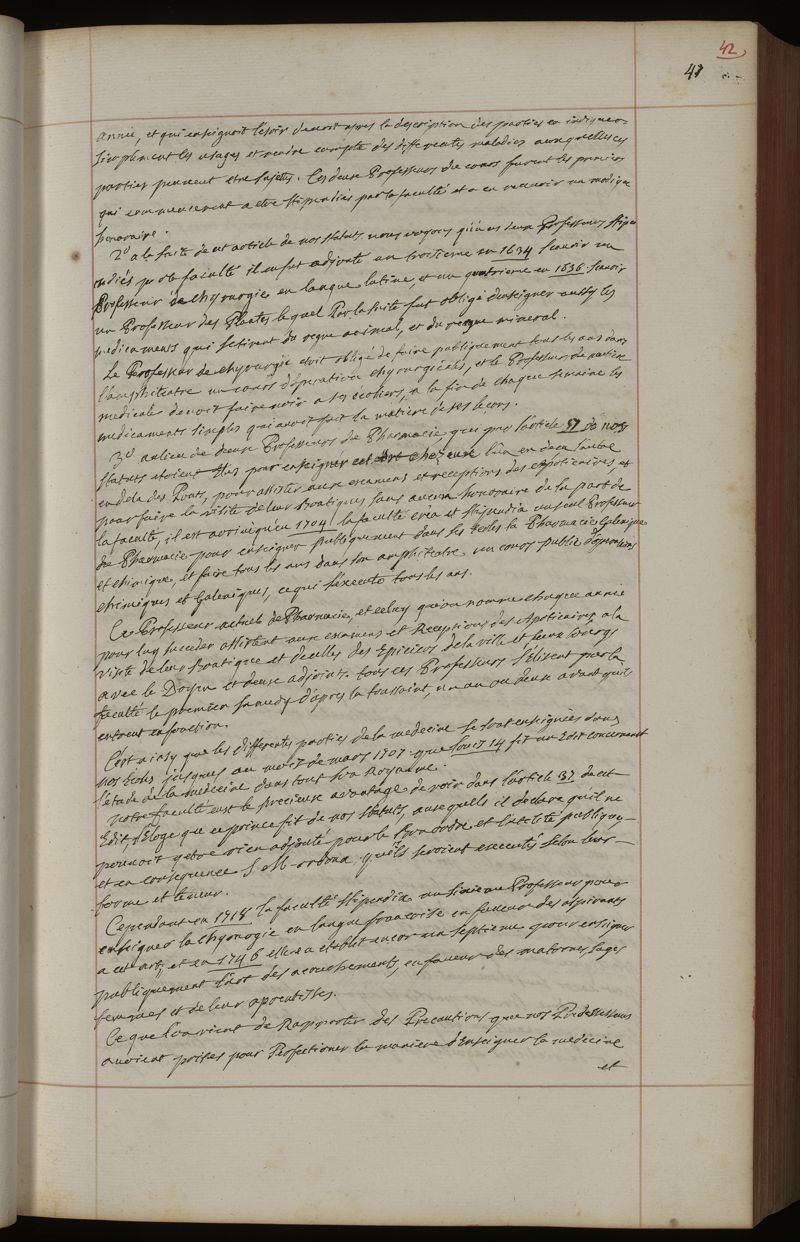 42
47
année, et qui enseignoit l'esoir devoit apres la description des parties en indiquer
simplement les usages et rendre compte des differentes maladies auxquelles ces
parties peuvent etre sujettes. Ces deux Professeurs de cours furent les premiers
qui commencerent a etre stipendiés par la faculté et a en recevoir un modique
honoraire.
2° a la suite de cet article de nos statuts nous voyons qu'a ces deux Professeurs stipen
diés par la faculté il en fut adjouté un troisieme en 1634 scavoir un
Professeur de chyrurgie en langue latine, et un quatrieme en 1636 scavoir
un Professeur des Plantes lequel Par la suite fut obligé d'enseigner aussy les
medicaments qui se tirent du regne animal, et du regne mineral.
Le Professeur de chyrurgie etoit obligé de faire publiquement tous les ans dans
l'amphiteatre un cours d'operation chyrurgicales, et le Professeur de matiere
medicale devoit faire voir a ses écoliers, a la fin de chaque semaine les
medicaments simples qui avoit fait la matiere de ses leçons.
3° au lieu de deux Professeurs de Pharmacie, que par l'article 57 de nos
statuts etoient élus pour enseigner cet art chez eux l'un en deca l'autre
en dela des Ponts, pour assister aux examens et receptions des Apoticaires, et
pour faire la visite de leur Boutiques sans aucun honoraire de la part de
la faculté, il est arrivé qu'en 1704 la faculté créa et stipendia un seul Professeur
de Pharmacie pour enseigner publiquement dans les écoles la Pharmacie Galenique
et chimique, et faire tous les ans dans son amphiteatre un cours public d'operations
chimiques et Galeniques, ce qui s'execute tous les ans.
Ce Professeur actuel de Pharmacie, et celuy qu'on nomme chaque année
pour luy succeder assistent aux examens et Receptions des Apoticaires a la
visite de leur Boutique et de celles des Epiciers de la ville et faux bourgs
avec le Doyen et deux adjoints. tous ces Professeurs s'élisent par la
faculté le premier samedy d'apres la toussaint, un an ou deux avant qu'il
entrent en fonction.
C'est ainsy que les differentes parties de la medecine se sont enseignées dans
nos écoles jusques au mois de mars 1707 que Louis 14 fit un Edit concernant
l'étude de la medecine dans tout son Royaume.
notre faculté eust le precieux avantage de voir dans l'article 37 du dit
Edit l'Eloge que ce prince fit de nos statuts, auxquels il declare qu'il ne
pouvoit etre rien adjouté pour le Bon ordre et l'utilité publique,
et en consequence S M ordona qu'ils seroient executés selon leur
forme et teneur.
Cependant en 1718 la faculté stipendia un sixieme Professeur pour
enseigner la chyrurgie en langue francoise en faveur des aspirants
a cet art; et en 1746 elle en a etablit encor un septieme pour enseigner
publiquement l'art des acouchements, en faveur des matrones, sages
femmes et de leur aprentisses.
Ce que l'on vient de Rapporter des Precautions que nos Predecesseurs
avoient prises pour Perfectioner la maniere d'enseigner la medecine
et